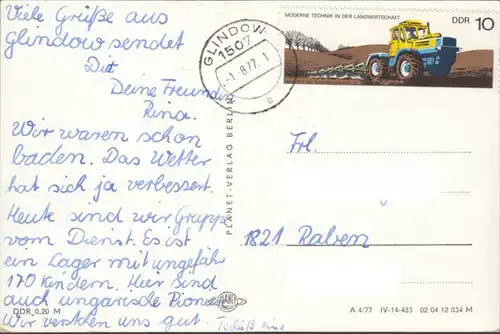 Viele Grüße aus
Glindow sendet
Dir
Deine Freundin
Rina.
Wir waren schon
baden. Das Wetter
hat sich ja verbessert.
Heute sind wir Gruppe
vom Dienst. Es ist
ein Lager mit ungefähr
170 Kindern. Hier sind
auch ungarische Pionie
Wir verstehen uns gut. Tschüß Rina
DDR 0,20 M
PLANET-VERLAG BERLIN
PLANET
GLINDOW
1507
-1.-8.77.-1
b
MODERNE TECHNIK IN DER LANDWIRTSCHAFT
DDR 10
Frl.
1821 Raben
A 4/77 IV-14-483 02 04 12 034 M